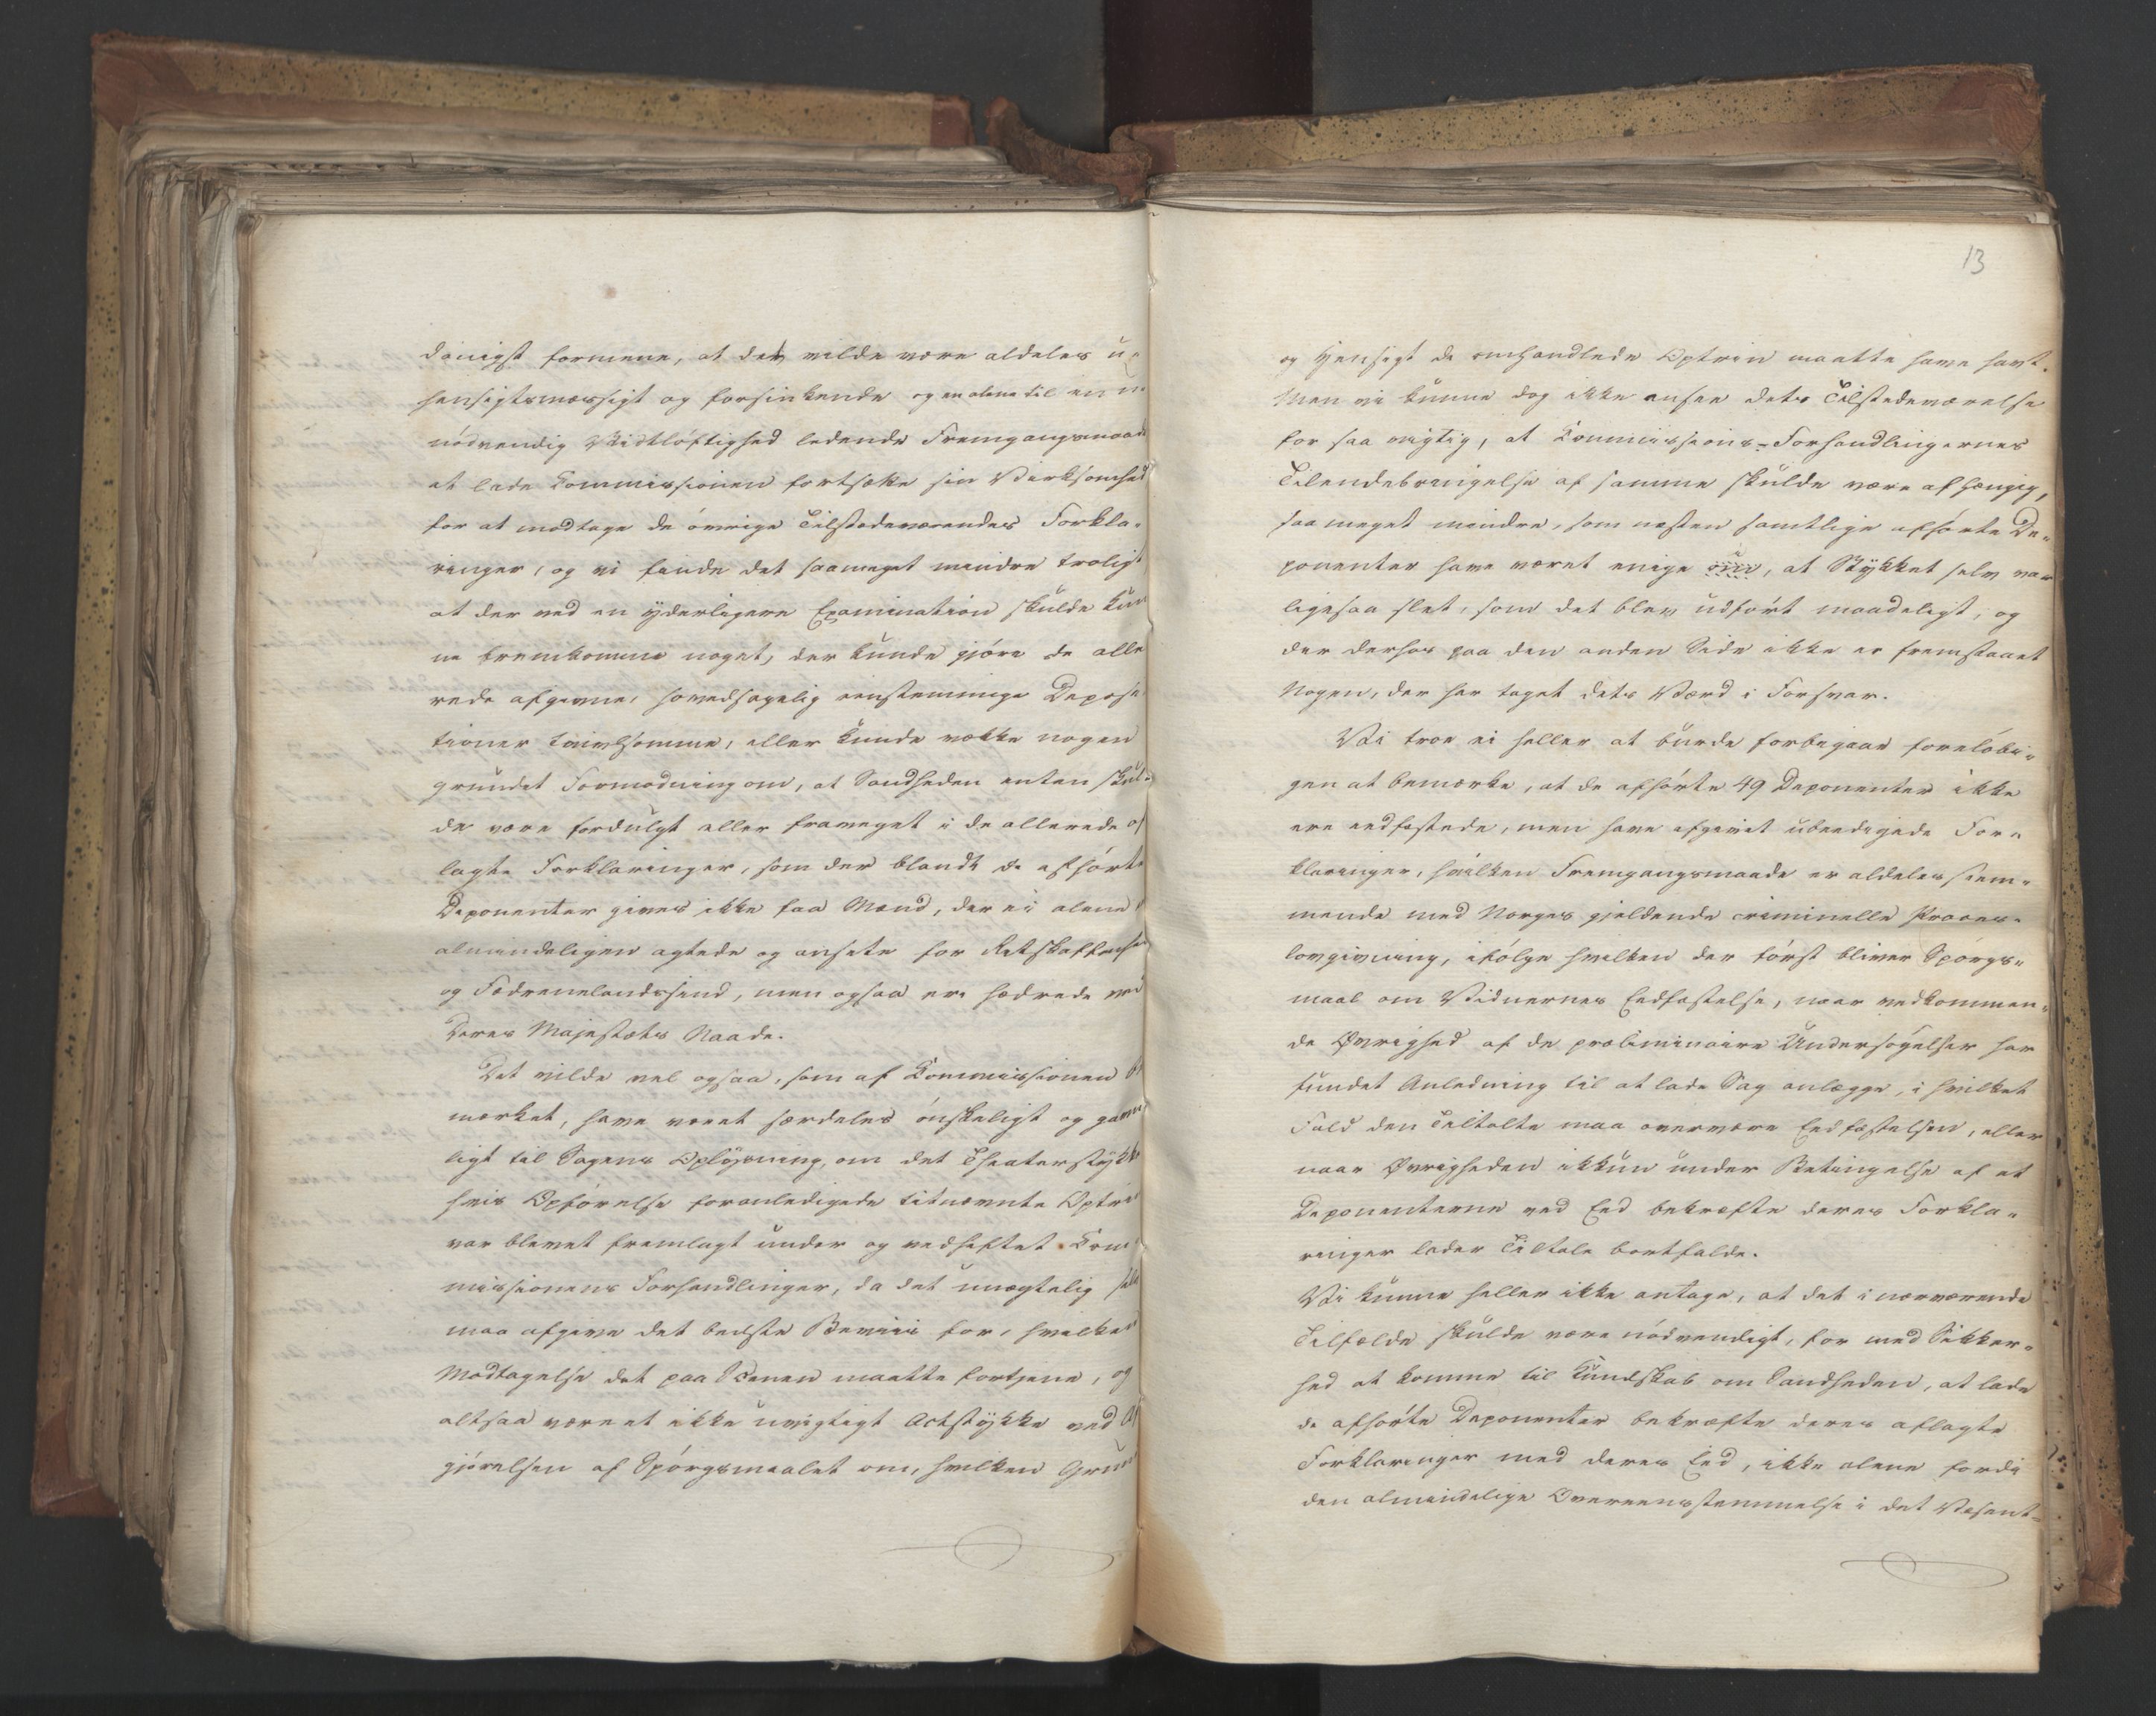 danigst formene, at det vilde være aldeles u-
hensigtsmæssigt og forsinkende og en alene til en u-
nödvendig Vidtlöftighed ledende Fremgangsmaade
at lade Commissionen fortsætte sin Virksomhed
for at modtage de övrige Tilstedeværendes Forkla-
ringer, og vi finde det saameget mindre troligt
at der ved en yderligere Examination skulde kun-
ne fremkomme noget, der kunde gjöre de alle-
rede afgivne, hovedsagelig eenstemmige Deposi-
tioner tvivlsomme, eller kunde vække nogen
grundet Formodning om, at Sandheden enten skul-
de være fordulgt eller fraveget i de allerede af-
lagte Forklaringer, som der blandt de afhörte
Deponenter gives ikke faa Mænd, der ei alene
almindeligen agtede og ansete for Retskaffenhed
og Fædrenelandssind, men ogsaa ere hædrede ved
Deres Majestæts Naade.
Det vilde vel ogsaa, som af Commissionen be-
mærket, have været særdeles önskeligt og gavn-
ligt til Sagens Oplysning, om det Theaterstykke
hvis Opförelse foranledigede bemeldte Optrin
var blevet fremlagt under og vedheftet Com-
missionens Forhandlinger, da det unægtelig selv
maa afgive det bedste Beviis for, hvilken
Modtagelse det paa Scenen maatte fortjene, og
altsaa være et ikke uvigtigt Actstykke ved Af-
gjörelsen af Spörgsmaalet om, hvilken Grund
13
og Hensigt de omhandlede Optrin maatte have havt.
Men vi kunne dog ikke ansee dets Tilstedeværelse
for saa vigtig, at Commissions-Forhandlingernes
Tilendebringelse af samme skulde være afhængig,
saa meget mindre, som næsten samtlige afhörte De-
ponenter have været enige om, at Stykket selv var
ligesaa slet, som det blev udfört maadeligt, og
der derhos paa den anden Side ikke er fremstaaet
Nogen, der har taget dets Værd i Forsvar.
Vi troe ei heller at burde forbigaae foreløbi-
gen at bemærke, at de afhörte 49 Deponenter ikke
ere eedfæstede, men have afgivet ubeedigede For-
klaringer, hvilken Fremgangsmaade er aldeles stem-
mende med Norges gjeldende criminelle Proces-
lovgivning, ifölge hvilken der först bliver Spörgs-
maal om Vidnernes Eedfæstelse, naar vedkommen-
de Øvrighed af de præliminaire Undersögelser har
fundet Anledning til at lade Sag anlægge, i hvilket
Fald den Tiltalte maa overvære Eedfæstelsen, eller
naar Øvrigheden ikkun under Betingelse af at
Deponenterne ved Eed bekræfte deres Forkla-
ringer lader Tiltale bortfalde.
Vi kunne heller ikke antage, at det i nærværende
Tilfælde skulde være nödvendigt, for med Sikker-
hed at komme til Kundskab om Sandheden, at lade
de afhörte Deponenter bekræfte deres aflagte
Forklaringer med deres Eed, ikke alene fordi
den almindelige Overeensstemmelse i det Væsent-